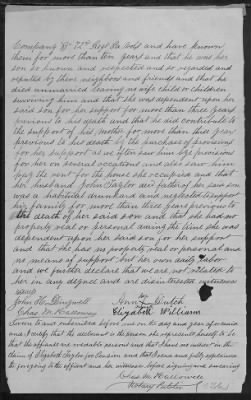 Company "B" 72nd Regt Pa Vols and have known
them for more than ten years and that he was her
son so known and respected and so regarded and
reputed by their neighbors and friends and that he
died unmarried leaving no wife child or children
surviving him and that she was dependent upon her
said son for her support for more than three years
previous to his death and that he did contribute to
the support of his mother for more than three years
previous to his death by the purchase of
for her support as we often saw him give provisions
for her on several occations and also saw him
pay the rent for the house she occupied and that
her husband John Taylor and father of her said son
was a habitual drunkard and neglected to support
his family for more than three years previous to
the death of her said son and that she had no
property real or personal during the time she was
dependent upon her said son for her support
and that she has no property real or personal and
no means of support but her own daily labor
and we further declare that we are not related to
her in any degree and are disinterested witnesses
John H. Dingwell
Ann Dutch
Chas M. Hallowell
Elizabeth Williams
Sworn to and subscribed before me on the day and year aforesaid
and I certify that the declarant is the person she represents herself to be
that the affiants are creditable persons and that I have no interest in the
claim of Elizabeth Taylor for pension and that I read and fully explained
the foregoing to the affiant and her witnesses before signing and swearing
Chas M. Hallowell
Notary Public